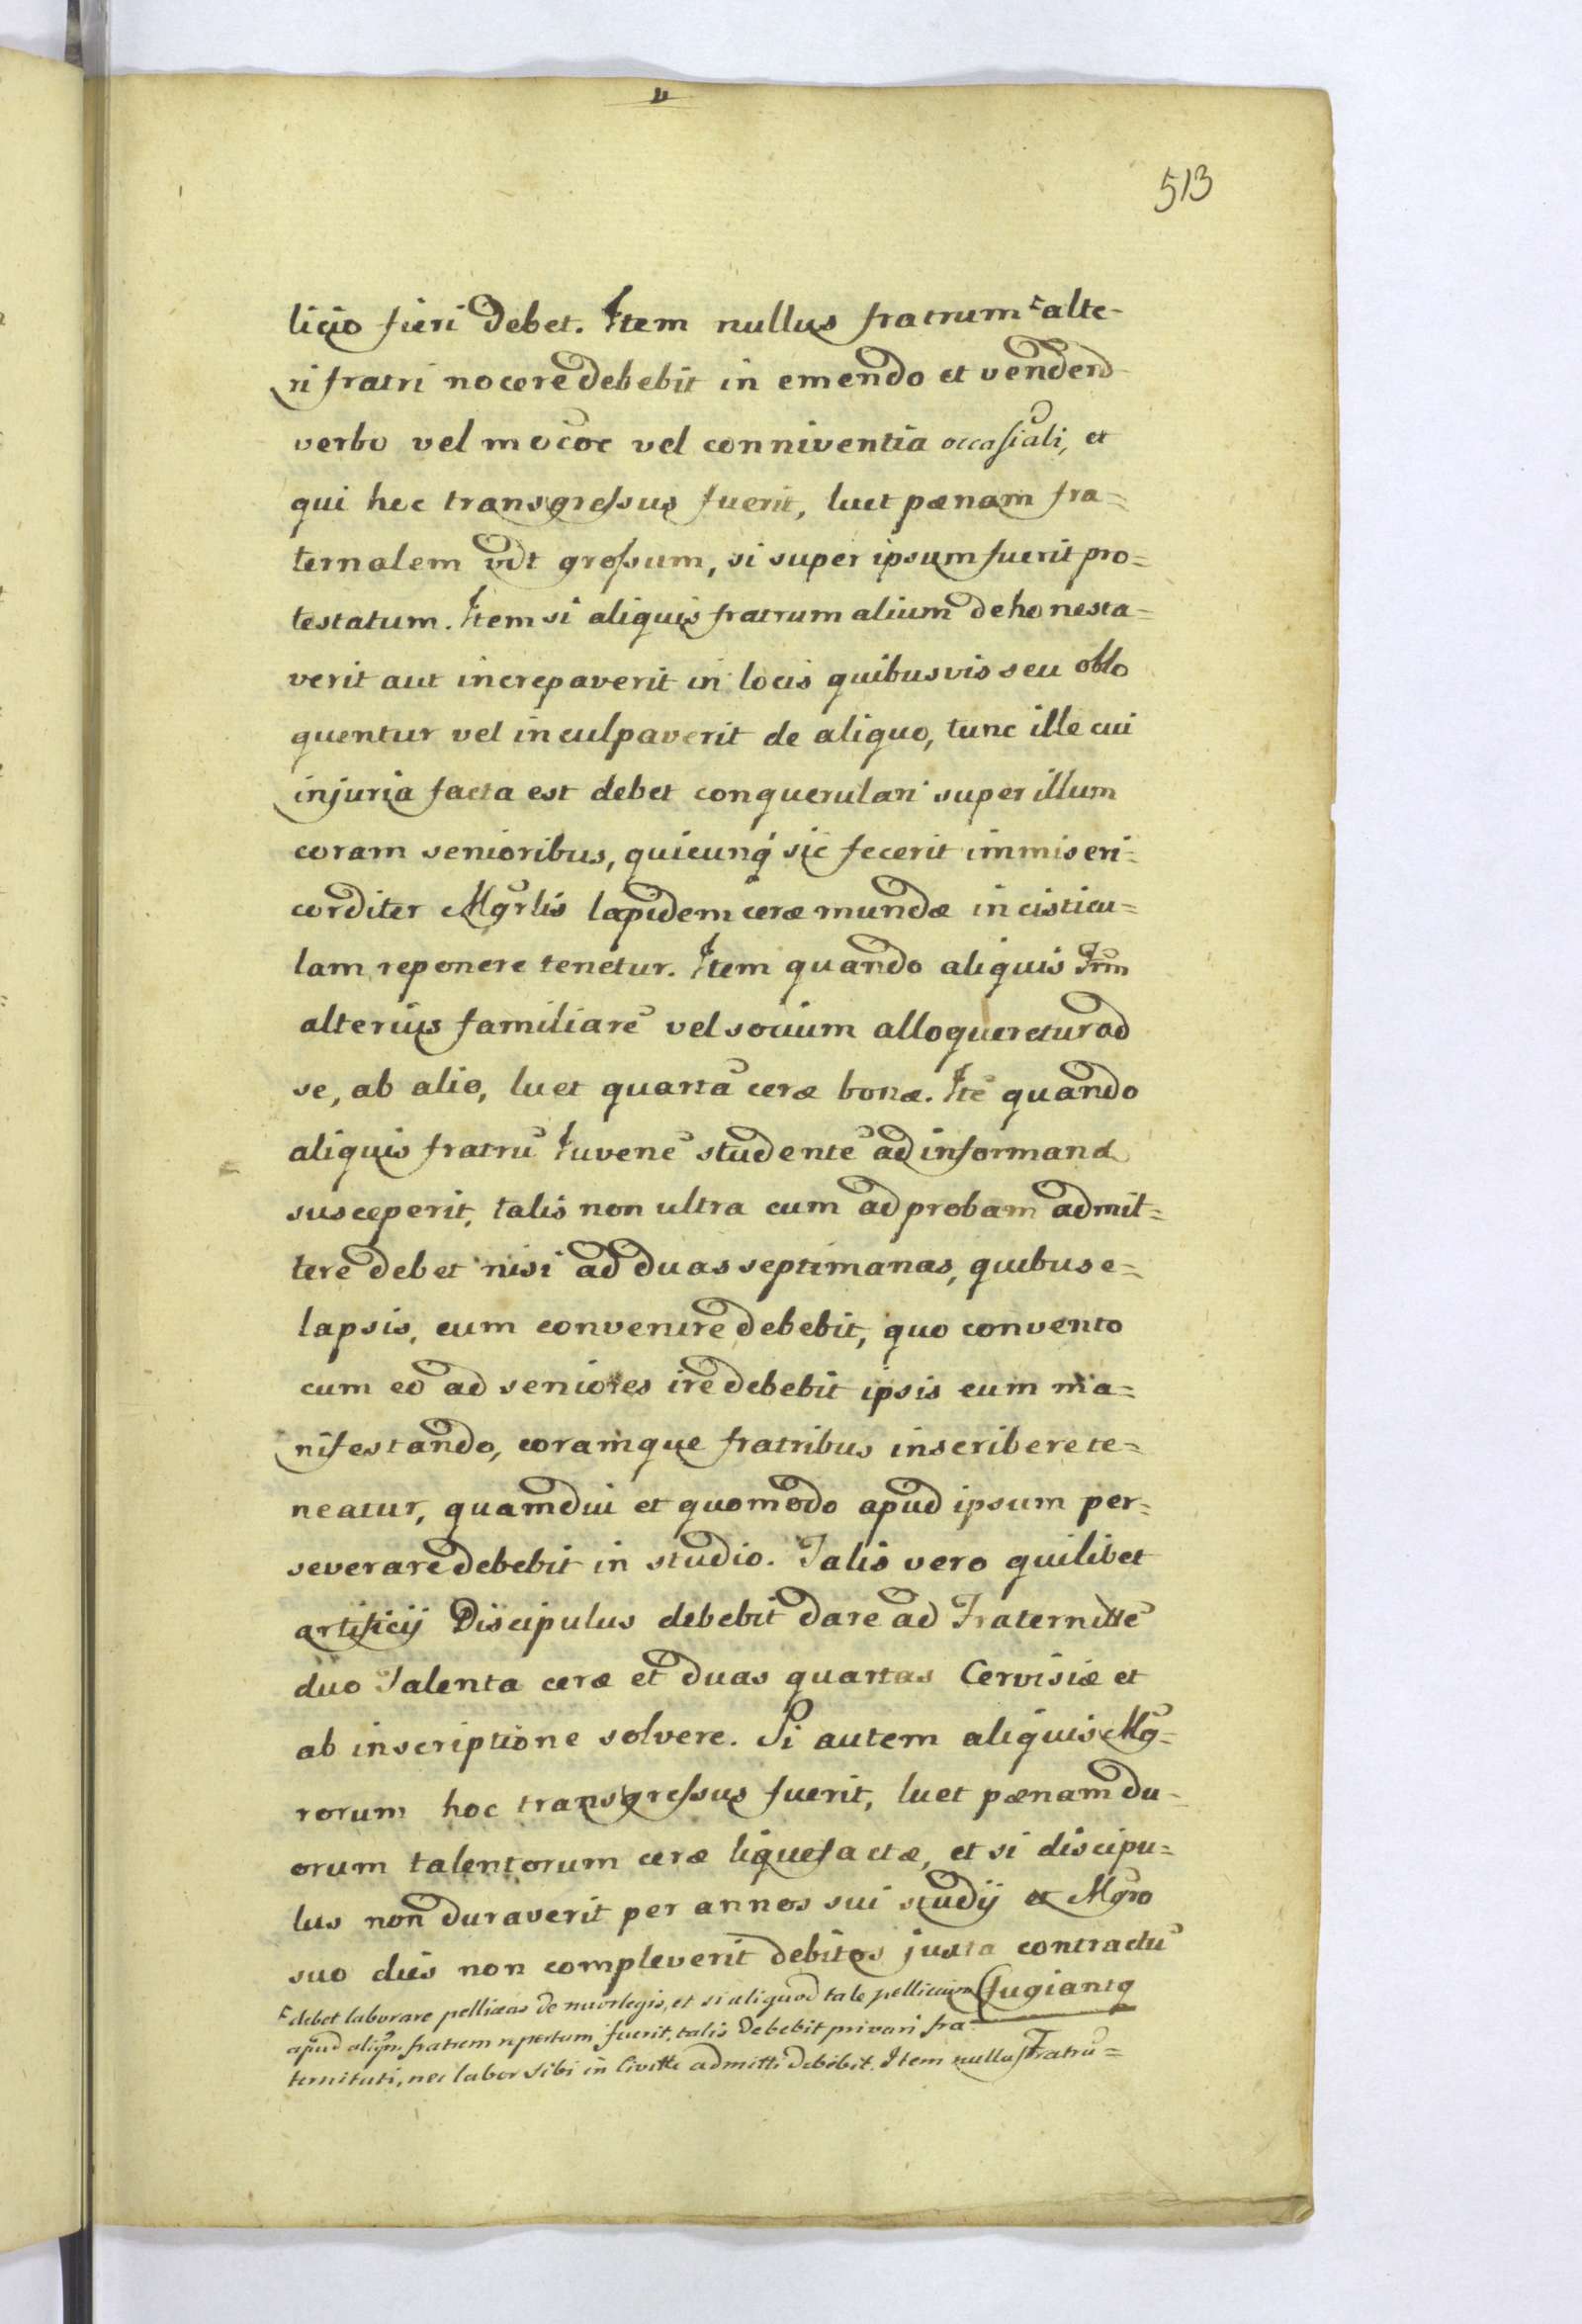 513
licio fieri debet. Item nullus fratrum alte-
ri fratri nocere debebit in emendo et vendend
verbo vel vel conniventia occasiali, et
qui hec transgressus fuerit, luet pœnam fra=
ternalem vdt grossum, si super ipsum fuerit pro=
testatum. Item si aliquis fratrum alium dehonesta=
verit aut increpaverit in locis quibusvis seu oblo
quentur vel inculpaverit de aliquo, tunc ille cui
injuria facta est debet conquerulari super illum
coram senioribus, quicunq̃ sic fecerit immiseri=
corditer Mgrlis lapidem ceræ mundæ in cisticu=
lam reponere tenetur. Item quando aliquis Frm
alterius familiarẽ vel socium alloqueretur ad
se, ab alio, luet quartã ceræ bonæ. Itẽ quando
aliquis fratrũ Iuvenẽ studentẽ ad informand
susceperit, talis non ultra cum ad probam admit=
tere debet nisi ad duas septimanas, quibus e=
lapsis, cum convenire debebit, quo convento
cum eo ad seniores ire debebit ipsis eum ma=
nifestando, coramque fratribus inscribere te=
neatur, quamdiu et quomodo apud ipsum per=
severare debebit in studio. Talis vero quilibet
artificij Discipulus debebit dare ad Fraternittẽ
duo Talenta ceræ et duas quartas Cervisiæ et
ab inscriptione solvere. Si autem aliquis Mg=
rorum hoc transgressus fuerit, luet pœnam du=
orum talentorum ceræ liquefactæ, et si discipu=
lus non duraverit per annos sui studij et Mgro
suo dies non compleverit debitos juxta contractũ
fugiantq
debet laborare pelliceas de et si aliquod tale pellicium
apud aliqm fratrem repertum fuerit, talis debebit privari fra-
ternitati, nec labor sibi in Civitte admitti debebit. Item nullus Fratrũ=